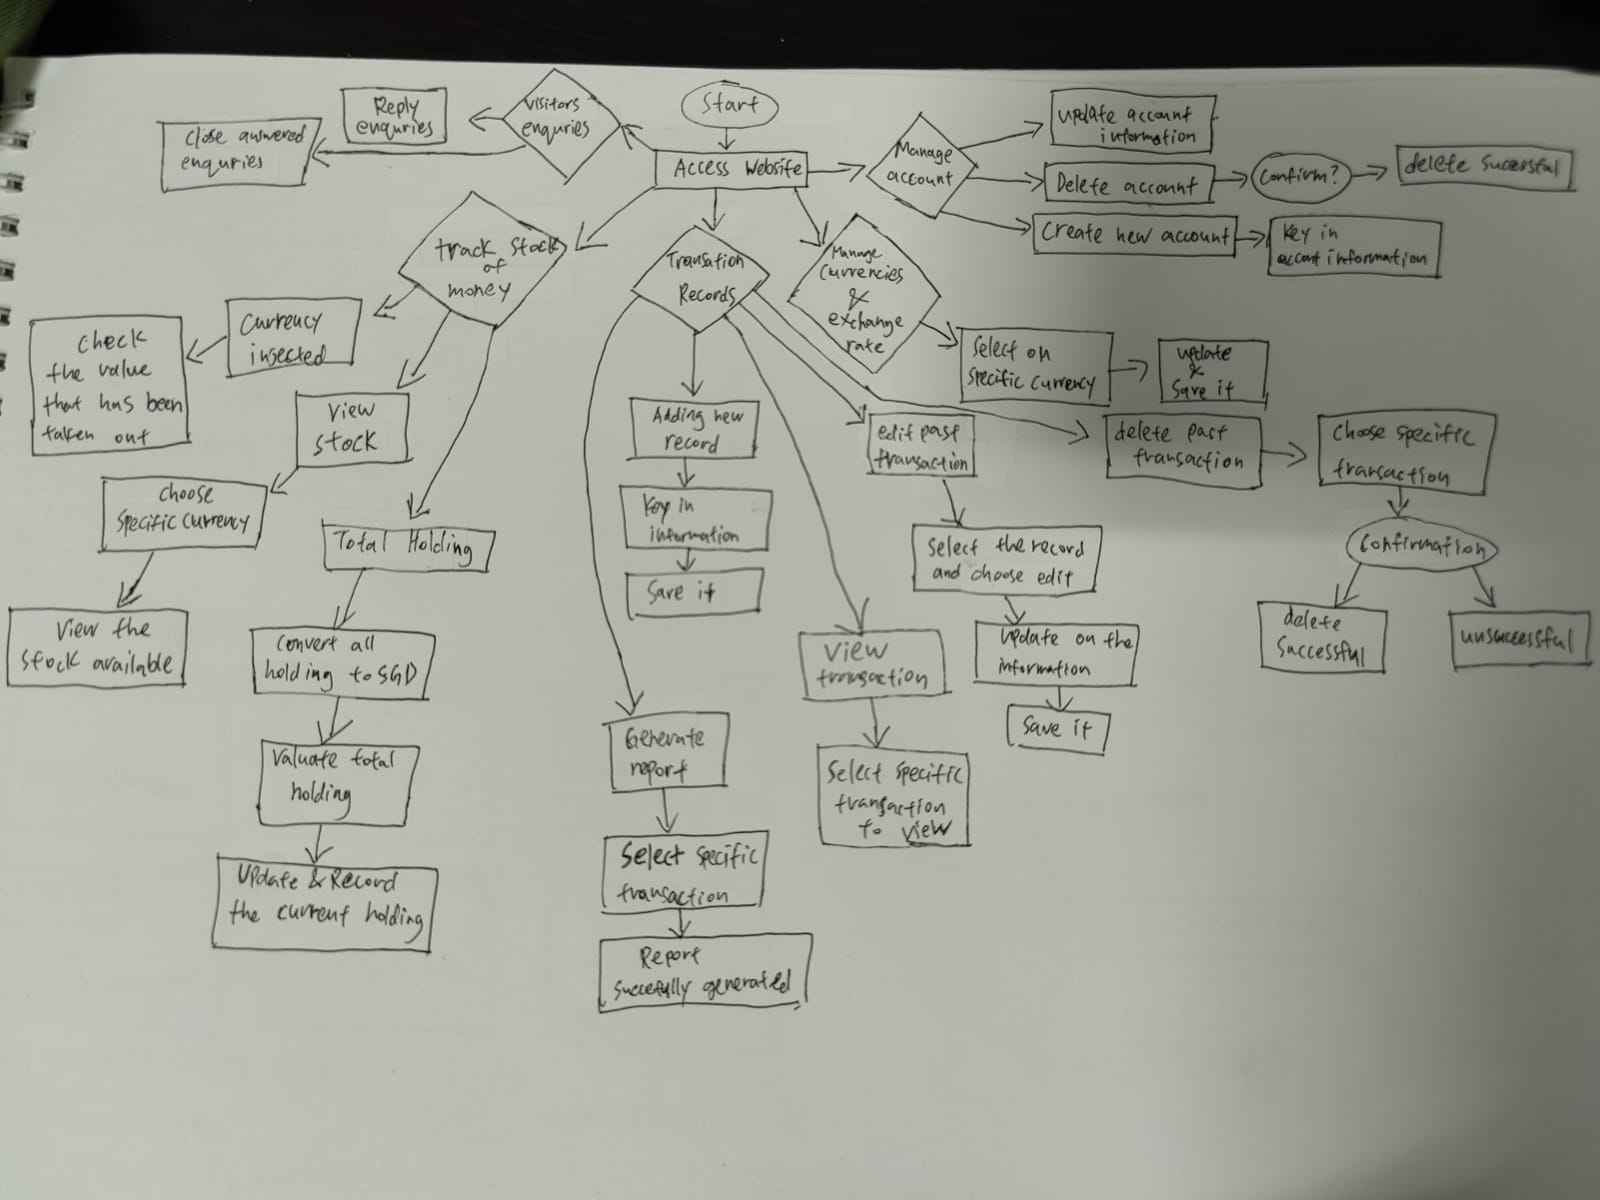 Start
Access Website
Visitors
enquries
Reply
enquries
Close answered
enquries
Manage
account
update account
information
Delete account
Confirm?
delete Successful
Create new account
Key in
account information
track stock
of
money
Currency
insected
Check
the value
that has been
taken out
View
Stock
Choose
Specific currency
View the
Stock available
Total Holding
Convert all
holding to SGD
Valuate total
holding
Update & Record
the current holding
Transation
Records
Adding new
record
Key in
information
Save it
Generate
report
Select specific
transaction
Report
succefully generated
View
transaction
Select specific
transaction
to view
edit past
transaction
Select the record
and choose edit
Update on the
information
Save it
delete past
transaction
Choose specific
transaction
Confirmation
delete
Successful
unsuccessful
Manage
Currencies
&
exchange
rate
Select on
specific currency
update
&
Save it